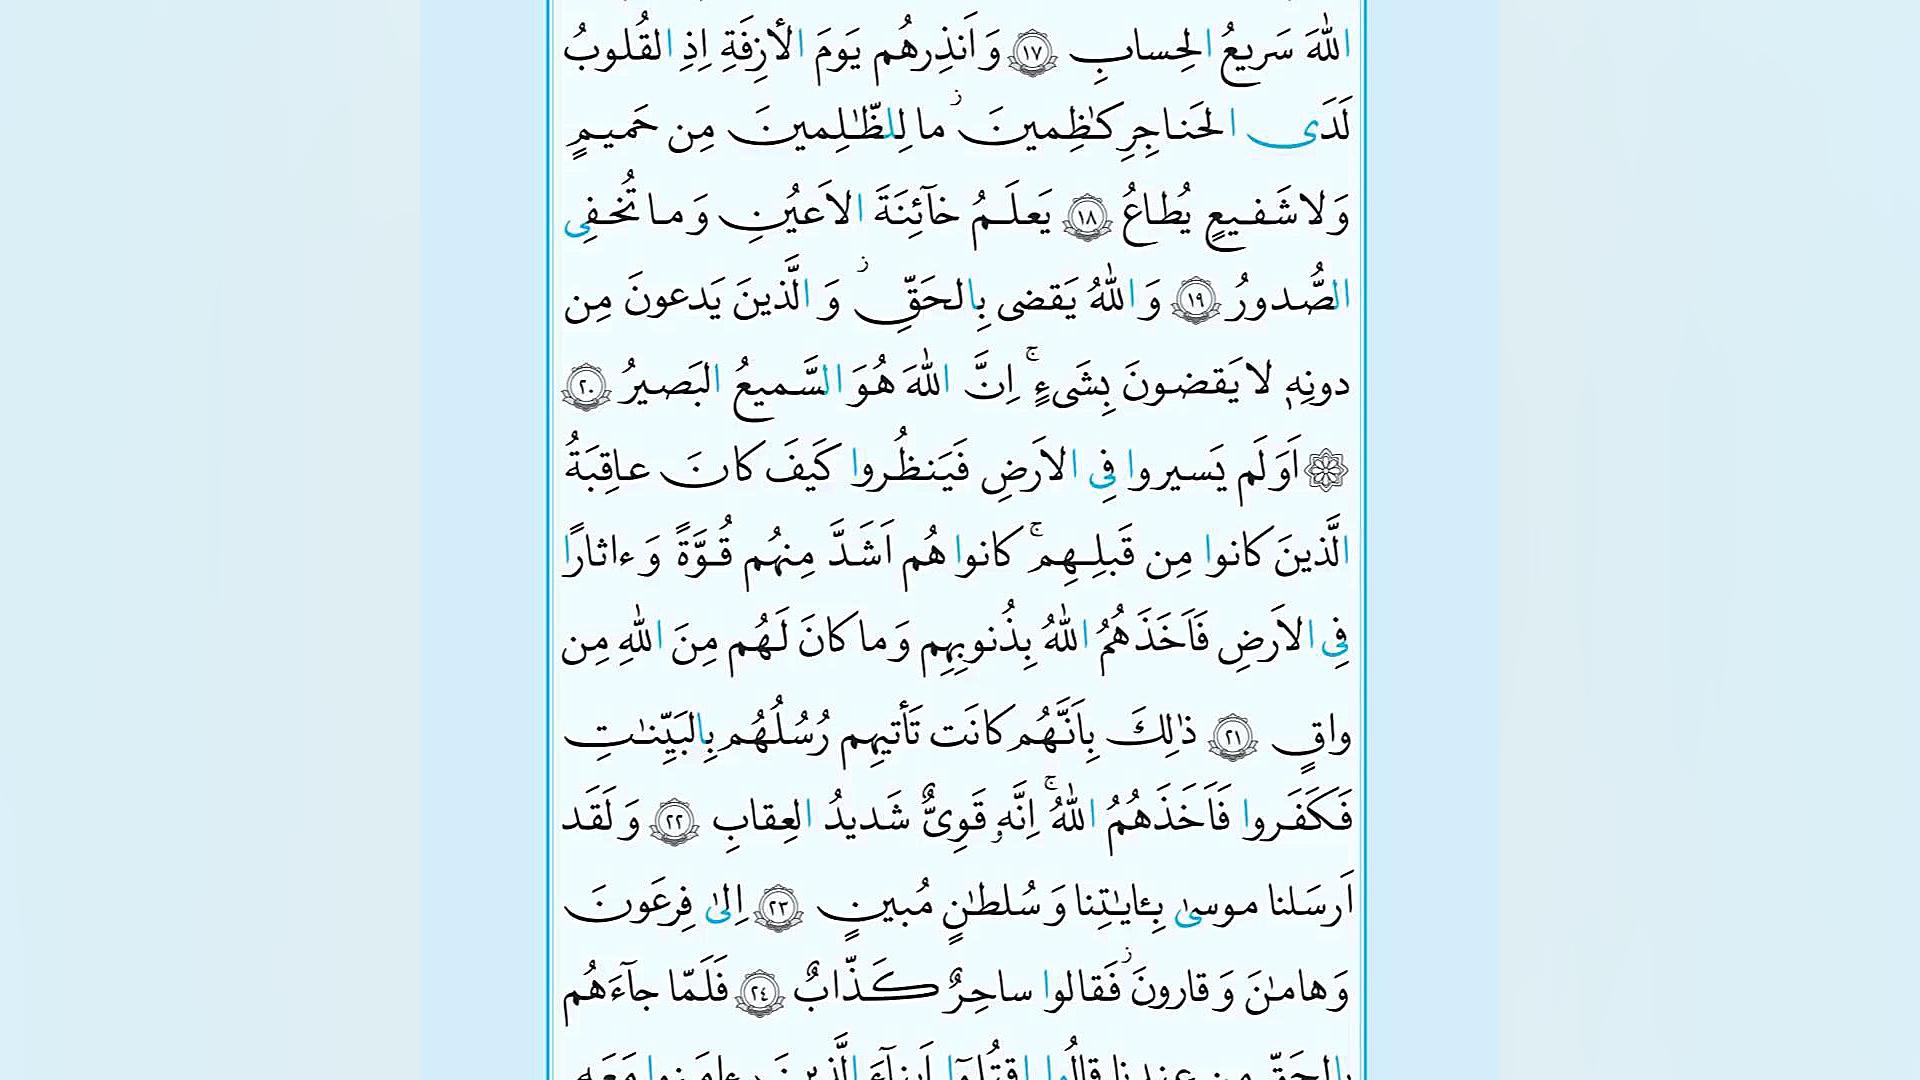 اللّٰهَ سَريعُ الحِسابِ ﴿١٧﴾ وَ اَنذِرهُم يَومَ الأزِفَةِ اِذِ القُلوبُ
لَدَى الحَناجِرِ كٰظِمينَ ۚز ما لِلظّٰلِمينَ مِن حَميمٍ
وَ لا شَفيعٍ يُطاعُ ﴿١٨﴾ يَعلَمُ خآئِنَةَ الاَعيُنِ وَ ما تُخفِى
الصُّدورُ ﴿١٩﴾ وَ اللّٰهُ يَقضى بِالحَقِّ ز وَ الَّذينَ يَدعونَ مِن
دونِهٖ لا يَقضونَ بِشَىءٍ ۚ اِنَّ اللّٰهَ هُوَ السَّميعُ البَصيرُ ﴿٢٠﴾
۞ اَوَ لَم يَسيروا فِى الاَرضِ فَيَنظُروا كَيفَ كانَ عاقِبَةُ
الَّذينَ كانوا مِن قَبلِهِم ۚ كانوا هُم اَشَدَّ مِنهُم قُوَّةً وَ ءاثارًا
فِى الاَرضِ فَاَخَذَهُمُ اللّٰهُ بِذُنوبِهِم وَ ما كانَ لَهُم مِنَ اللّٰهِ مِن
واقٍ ﴿٢١﴾ ذٰلِكَ بِاَنَّهُم كانَت تَأتيهِم رُسُلُهُم بِالبَيِّنٰتِ
فَكَفَروا فَاَخَذَهُمُ اللّٰهُ ۚ اِنَّهٗ قَوِىٌّ شَديدُ العِقابِ ﴿٢٢﴾ وَ لَقَد
اَرسَلنا موسىٰ بِـٔايٰتِنا وَ سُلطٰنٍ مُبينٍ ﴿٢٣﴾ اِلىٰ فِرعَونَ
وَ هامٰنَ وَ قارونَ ز فَقالوا ساحِرٌ كَذّابٌ ﴿٢٤﴾ فَلَمّا جآءَهُم
بِالحَقِّ مِن عِندِنا قالُوا اقتُلوٓا اَبنآءَ الَّذينَ ءامَنوا مَعَهٗ